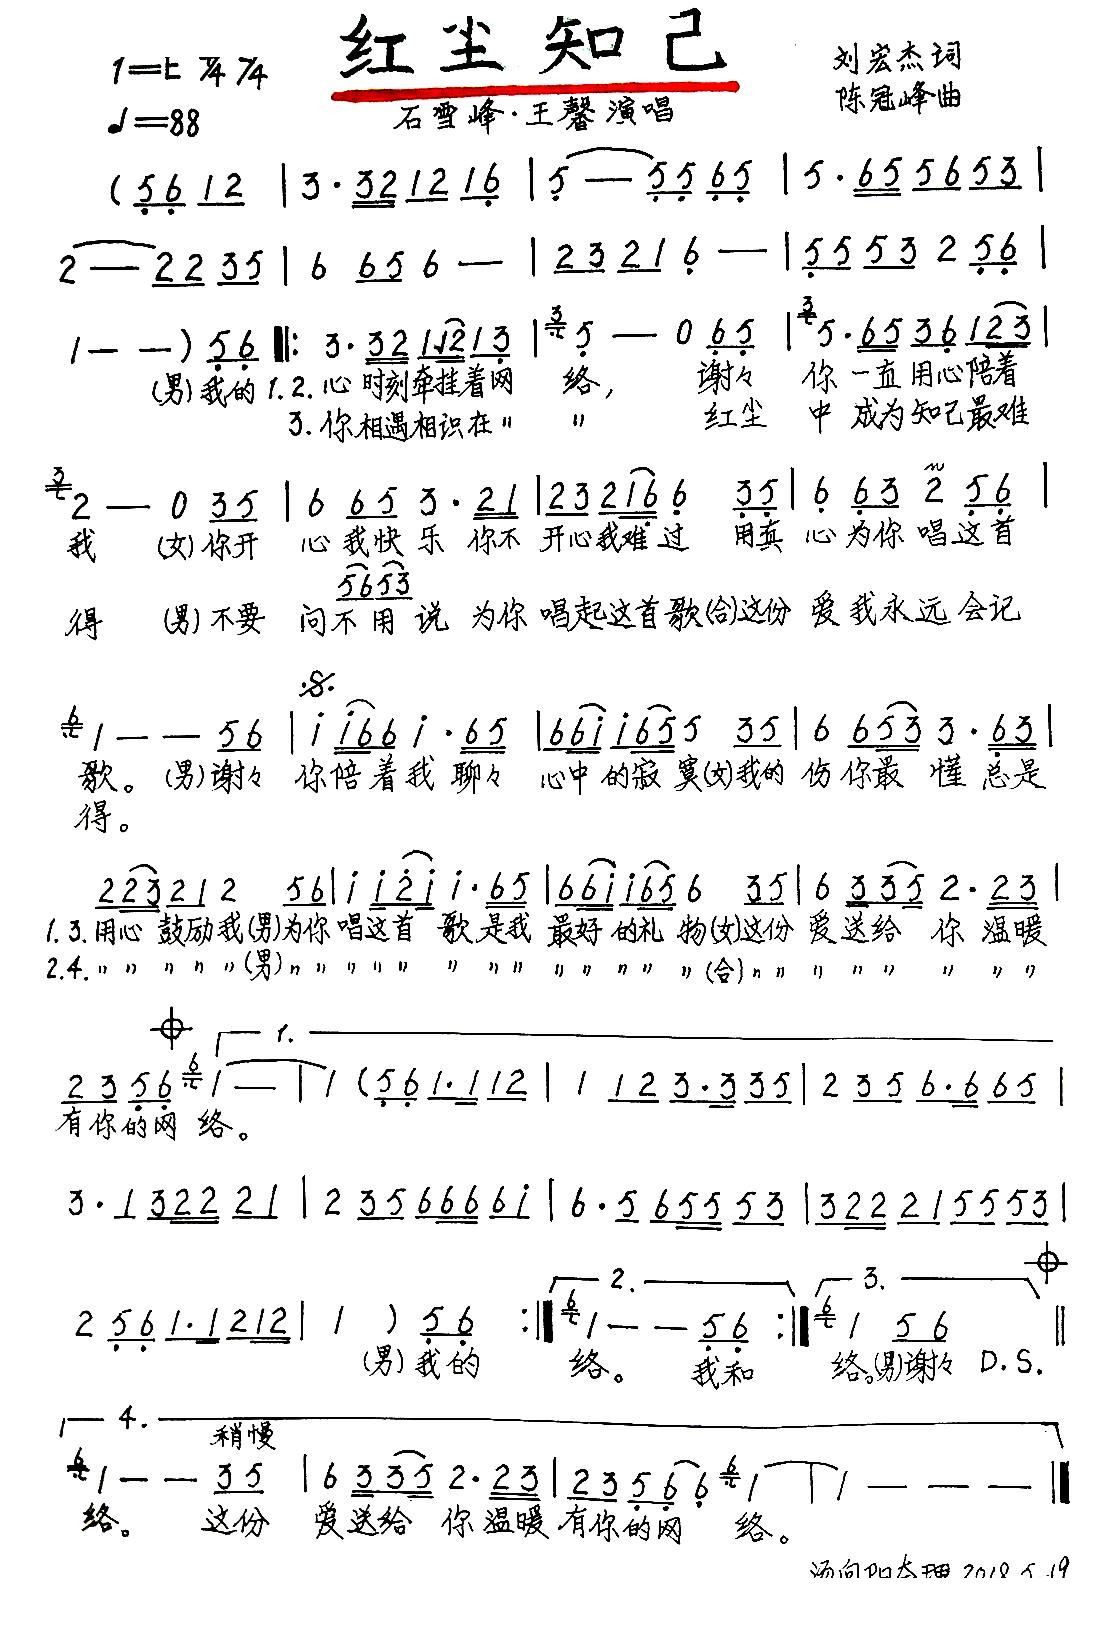 红尘知己
1=
♩=88
石雪峰·王馨演唱
刘宏杰词
陈冠峰曲
(56 12 | 3·32 12 16 | 5 — 55 65 | 5·65 56 53 |
2 — 22 35 | 6 65 6 — | 23 21 6 — | 55 53 2 56 |
1 — — ) 56 ‖: 3·32 1 2 13 | 5 — 0 65 | 5·65 36 123 |
(男)我的1.2.心时刻牵挂着网 络, 谢々 你一直用心陪着
3.你相遇相识在〃 〃 红尘 中成为知己最难
2 — 0 35 | 6 65 3·21 | 23 216 6 35 | 6 63 2 56 |
我 (女)你开 心我快乐你不 开心我难过 用真 心为你唱这首
56 53
得 (男)不要 问不用说 为你 唱起这首歌(合)这份 爱我永远会记
1 — — 56 | i i66 i·65 | 66i i65 5 35 | 6 653 3·63 |
歌。(男)谢々 你陪着我聊々 心中的寂寞(女)我的 伤你最懂总是
得。
223 21 2 56 | i i2i i·65 | 66i i65 6 35 | 6 335 2·23 |
1.3.用心鼓励我(男)为你 唱这首歌是我 最好的礼物(女)这份 爱送给你温暖
2.4.〃 〃 〃 〃 〃(男)〃 〃 〃 〃 〃 〃 〃 〃 〃 〃 〃 〃 〃(合)〃 〃 〃 〃 〃 〃 〃 〃
1.
23 56 1 — | 1 (56 1·1 12 | 1 12 3·3 35 | 2 35 6·6 65 |
有你的网络。
3·1 322 21 | 2 35 666 6i | 6·5 655 53 | 322 21 55 53 |
2. 3.
2 56 1·1 212 | 1 ) 56 :‖ 1 — — 56 :‖ 1 56 ‖
(男)我的 络。 我和 络。(男)谢々 D.S.
4.
稍慢
1 — — 35 | 6 335 2·23 | 23 56 6 1 — | 1 — — — ‖
络。 这份 爱送给你温暖 有你的网 络。
2018.5.19